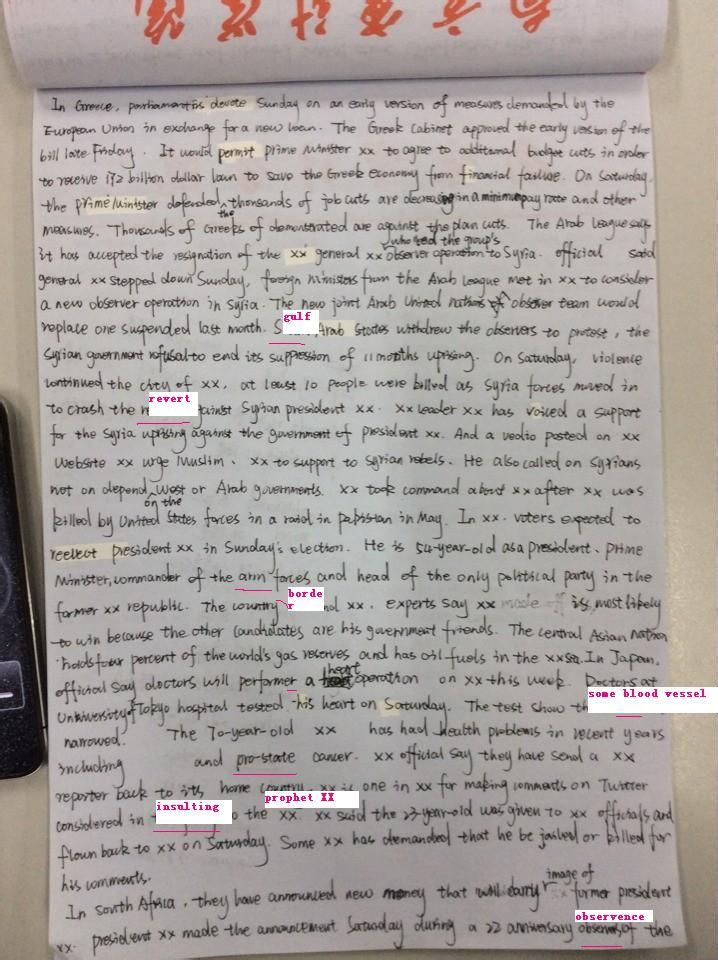 In Greece, parliament is devote Sunday on an early version of measures demanded by the
European Union in exchange for a new loan. The Greek Cabinet approved the early version of the
bill late Friday. It would permit prime minister xx to agree to additional budget cuts in order
to receive 172 billion dollar loan to save the Greek economy from financial failure. On Saturday,
the prime minister defended, thousands of job cuts are decreasing in a minimum pay rate and other
measures. Thousands of the Greeks of demonstrated are against the plan cuts. The Arab League says
it has accepted the resignation of the xx general xx who led the group's observer operation to Syria. official said
general xx stepped down Sunday, foreign ministers from the Arab League met in xx to consider
a new observer operation in Syria. The new joint Arab United nations observer team would
replace one suspended last month. gulf Arab States withdrew the observers to protest, the
Syrian government refusal to end its suppression of 11 months uprising. On Saturday, violence
continued the city of xx, at least 10 people were killed as Syria forces moved in
to crash the revert against Syrian president xx. xx leader xx has voiced a support
for the Syria uprising against the government of president xx. And a vedio posted on xx
website xx urge Muslim, xx to support to Syrian rebels. He also called on Syrians
not on depend on the West or Arab governments. xx took command about xx after xx was
killed by United States forces in a raid in pakistan in May. In xx. voters expected to
reelect president xx in Sunday's election. He is 54-year-old as a president, prime
Minister, commander of the arm forces and head of the only political party in the
former xx republic. The country border xx. experts say xx is most likely
to win because the other candidates are his government friends. The central Asian nation
holds four percent of the world's gas reserves and has oil fuels in the xx sea. In Japan,
official say doctors will performer a heart operation on xx this week. Doctors at
University of Tokyo hospital tested his heart on Saturday. The test show some blood vessel
narrowed. The 70-year-old xx has had health problems in recent years
including and pro-state cancer. xx official say they have send a xx
reporter back to its home country. xx is one in xx for making comments on Twitter
considered in insulting to the prophet XX xx. xx said the 23-year-old was given to xx officials and
flown back to xx on Saturday. Some xx has demanded that he be jailed or killed for
his comments.
In South Africa, they have announced new money that will carry image of former president
xx. president xx made the announcement Saturday during a 22 anniversary observence of the